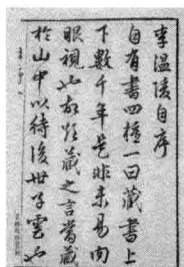 李溫陵自序
自有書四種一曰藏書上
下數千年是非未易肉
眼視也故欲藏之言當藏
於山中以待後世子雲也